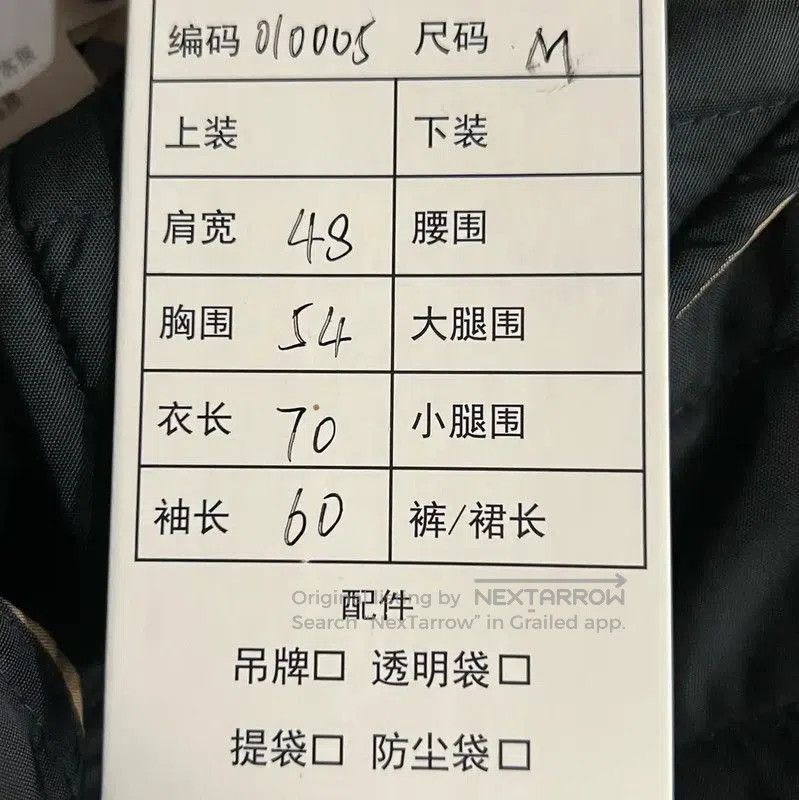 编码 010005 尺码 M
上装 下装
肩宽 48 腰围
胸围 54 大腿围
衣长 70 小腿围
袖长 60 裤/裙长
配件
Original listing by NEXTARROW
Search "NexTarrow" in Grailed app.
吊牌□ 透明袋□
提袋□ 防尘袋□